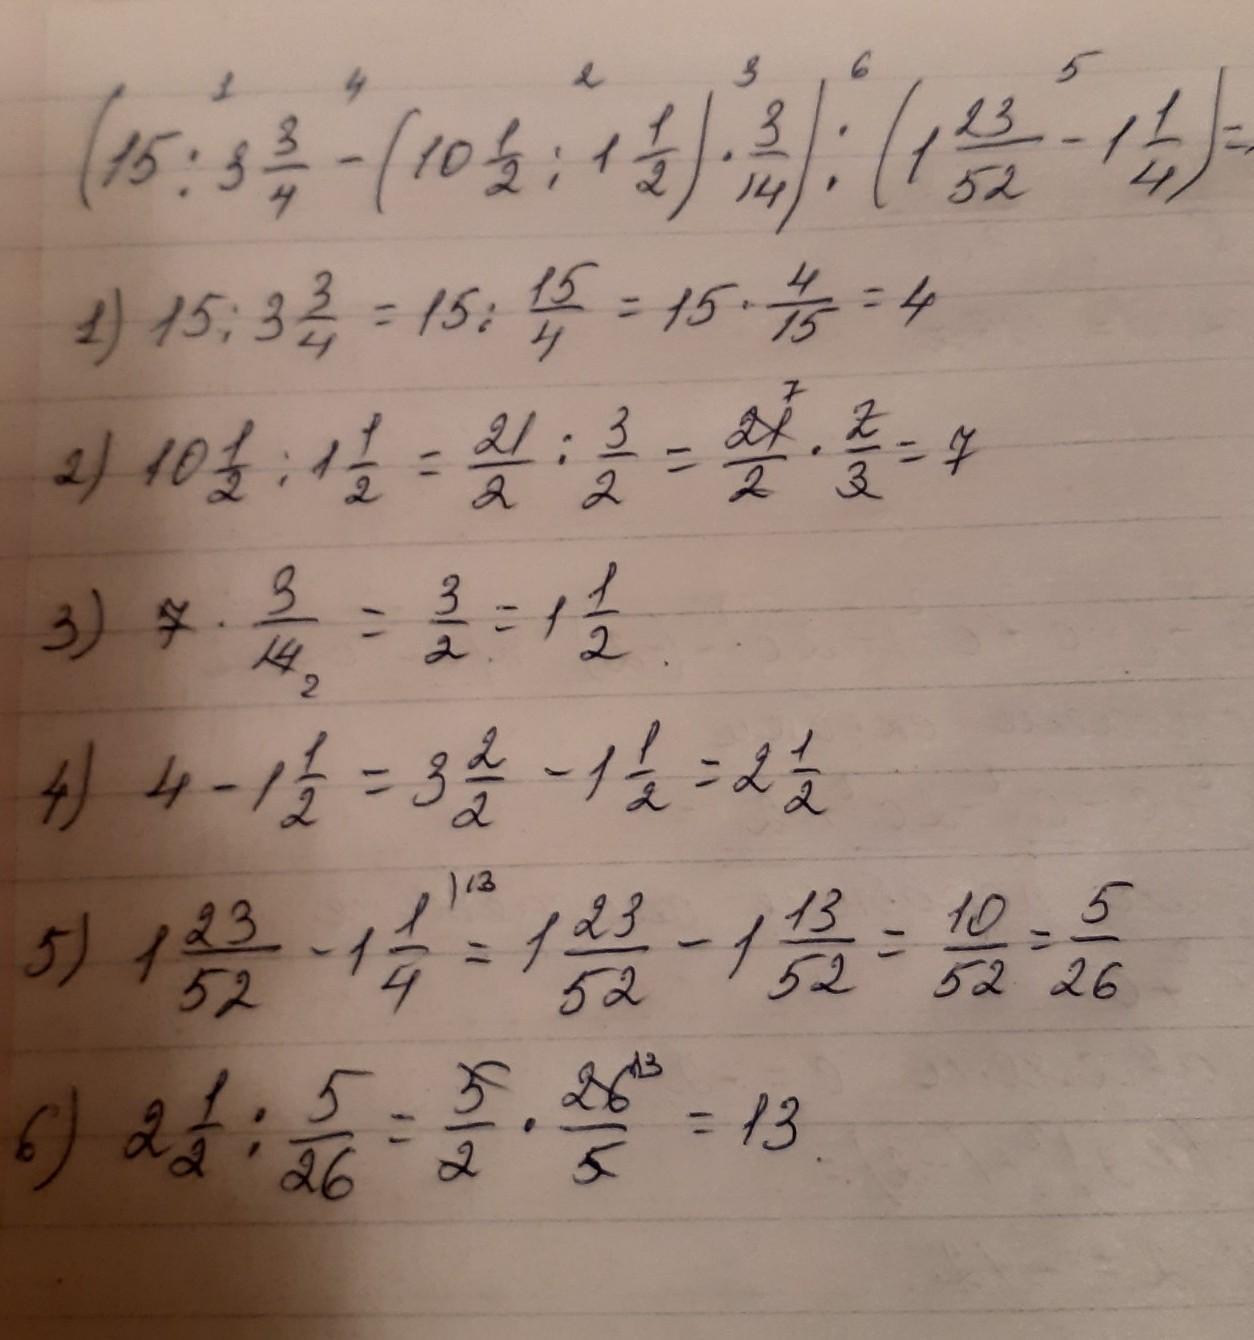 (15 : 3 3/4 - (10 1/2 : 1 1/2) · 3/14) : (1 23/52 - 1 1/4) =
1) 15 : 3 3/4 = 15 : 15/4 = 15 · 4/15 = 4
2) 10 1/2 : 1 1/2 = 21/2 : 3/2 = 21/2 · 2/3 = 7
3) 7 · 3/14 = 3/2 = 1 1/2
4) 4 - 1 1/2 = 3 2/2 - 1 1/2 = 2 1/2
5) 1 23/52 - 1 1/4 )13 = 1 23/52 - 1 13/52 = 10/52 = 5/26
6) 2 1/2 : 5/26 = 5/2 · 26/5 = 13